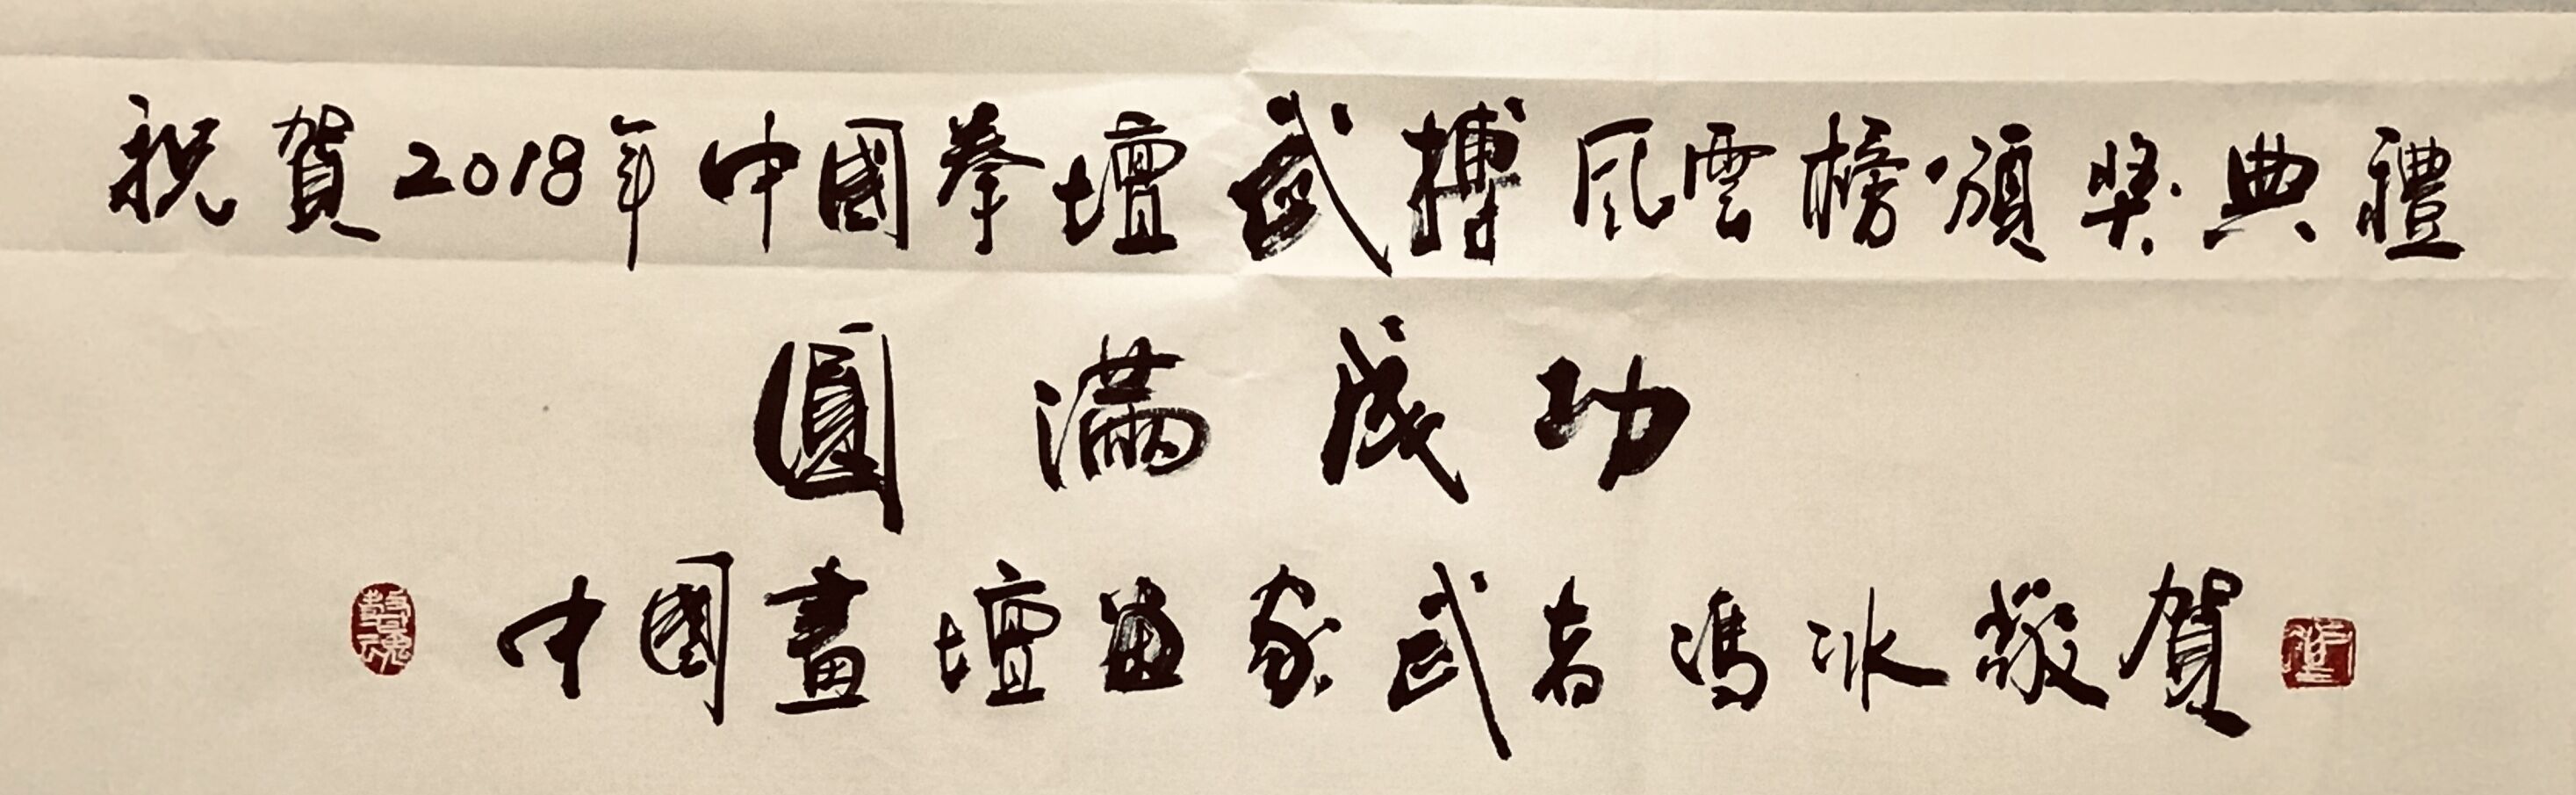 祝賀2018年中國拳壇武搏風雲榜頒奖典禮
圓滿成功
中國畫壇画家武者馮冰敬賀